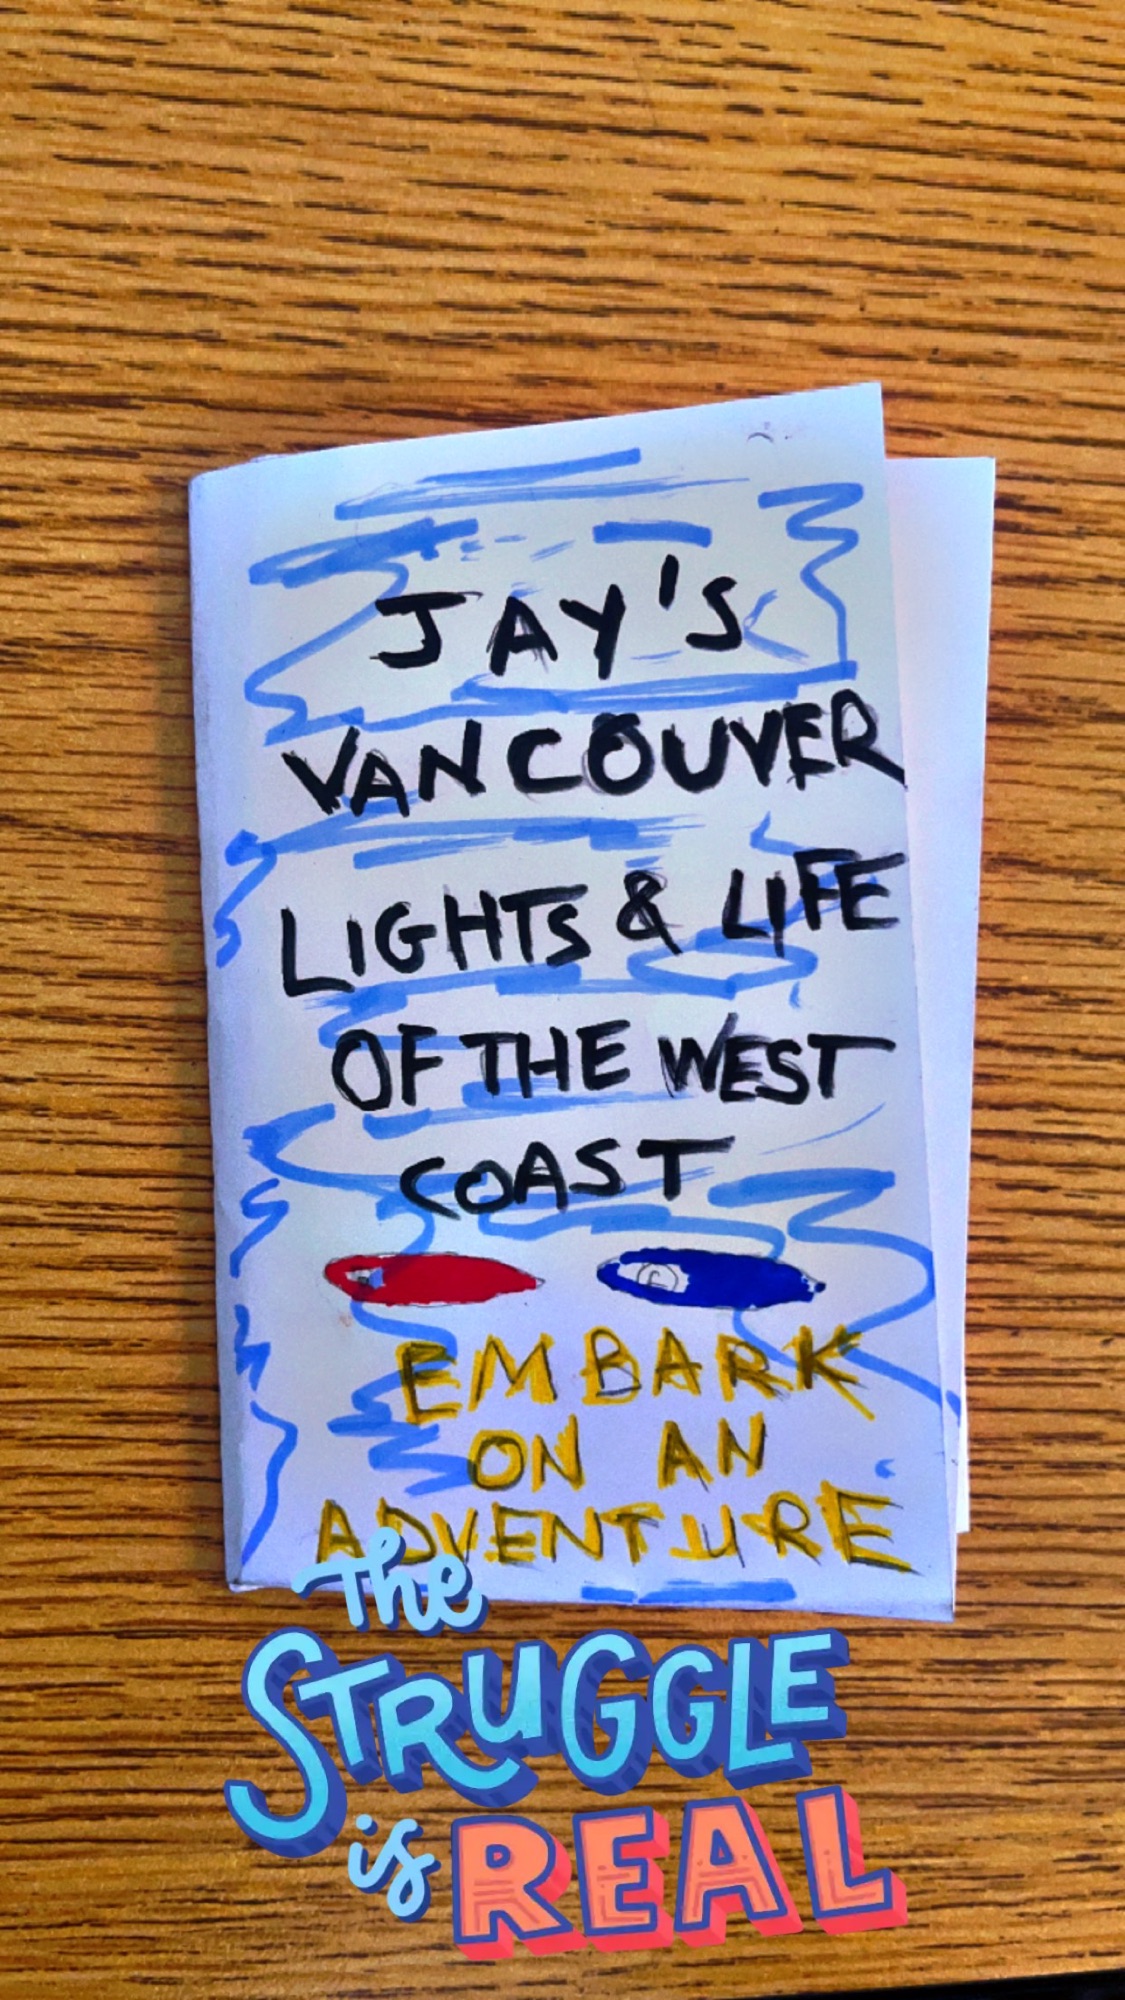 JAY'S
VANCOUVER
LIGHTS & LIFE
OF THE WEST
COAST
C
EMBARK
ON AN
ADVENTURE
The
STRUGGLE
is REAL